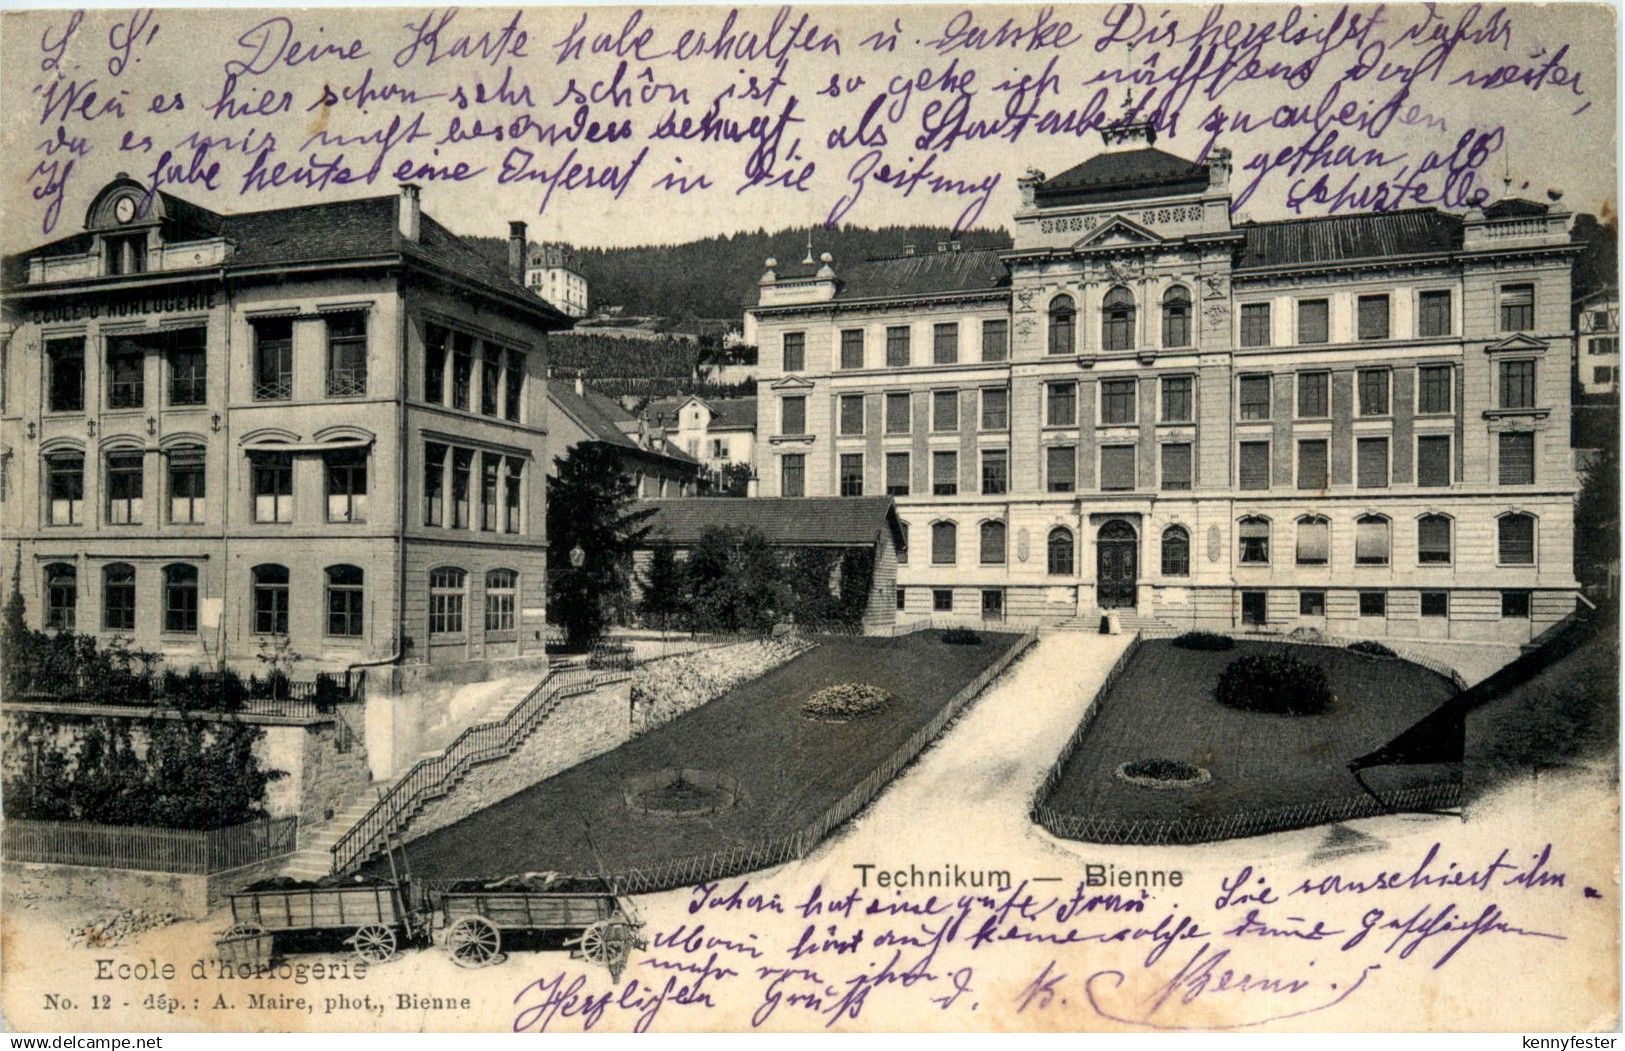 L. L! Deine Karte habe erhalten u. danke Dir herzlichst dafür
Wen es hier schon sehr schön ist, so gehe ich nächstens doch weiter,
da es mir nicht besonders behagt, als Stadtarbeiter zu arbeiten
Ich habe heute eine Inserat in die Zeitung gethan, als
ECOLE D'HORLOGERIE
Technikum — Bienne
Johan hat eine gute Frau. Sie
Man hört auch keine solche dume Geschichten
mehr von ihm.
Herzlichen Gruß d. K.
Ecole d'horlogerie
No. 12 - dép.: A. Maire, phot., Bienne
kennyfester